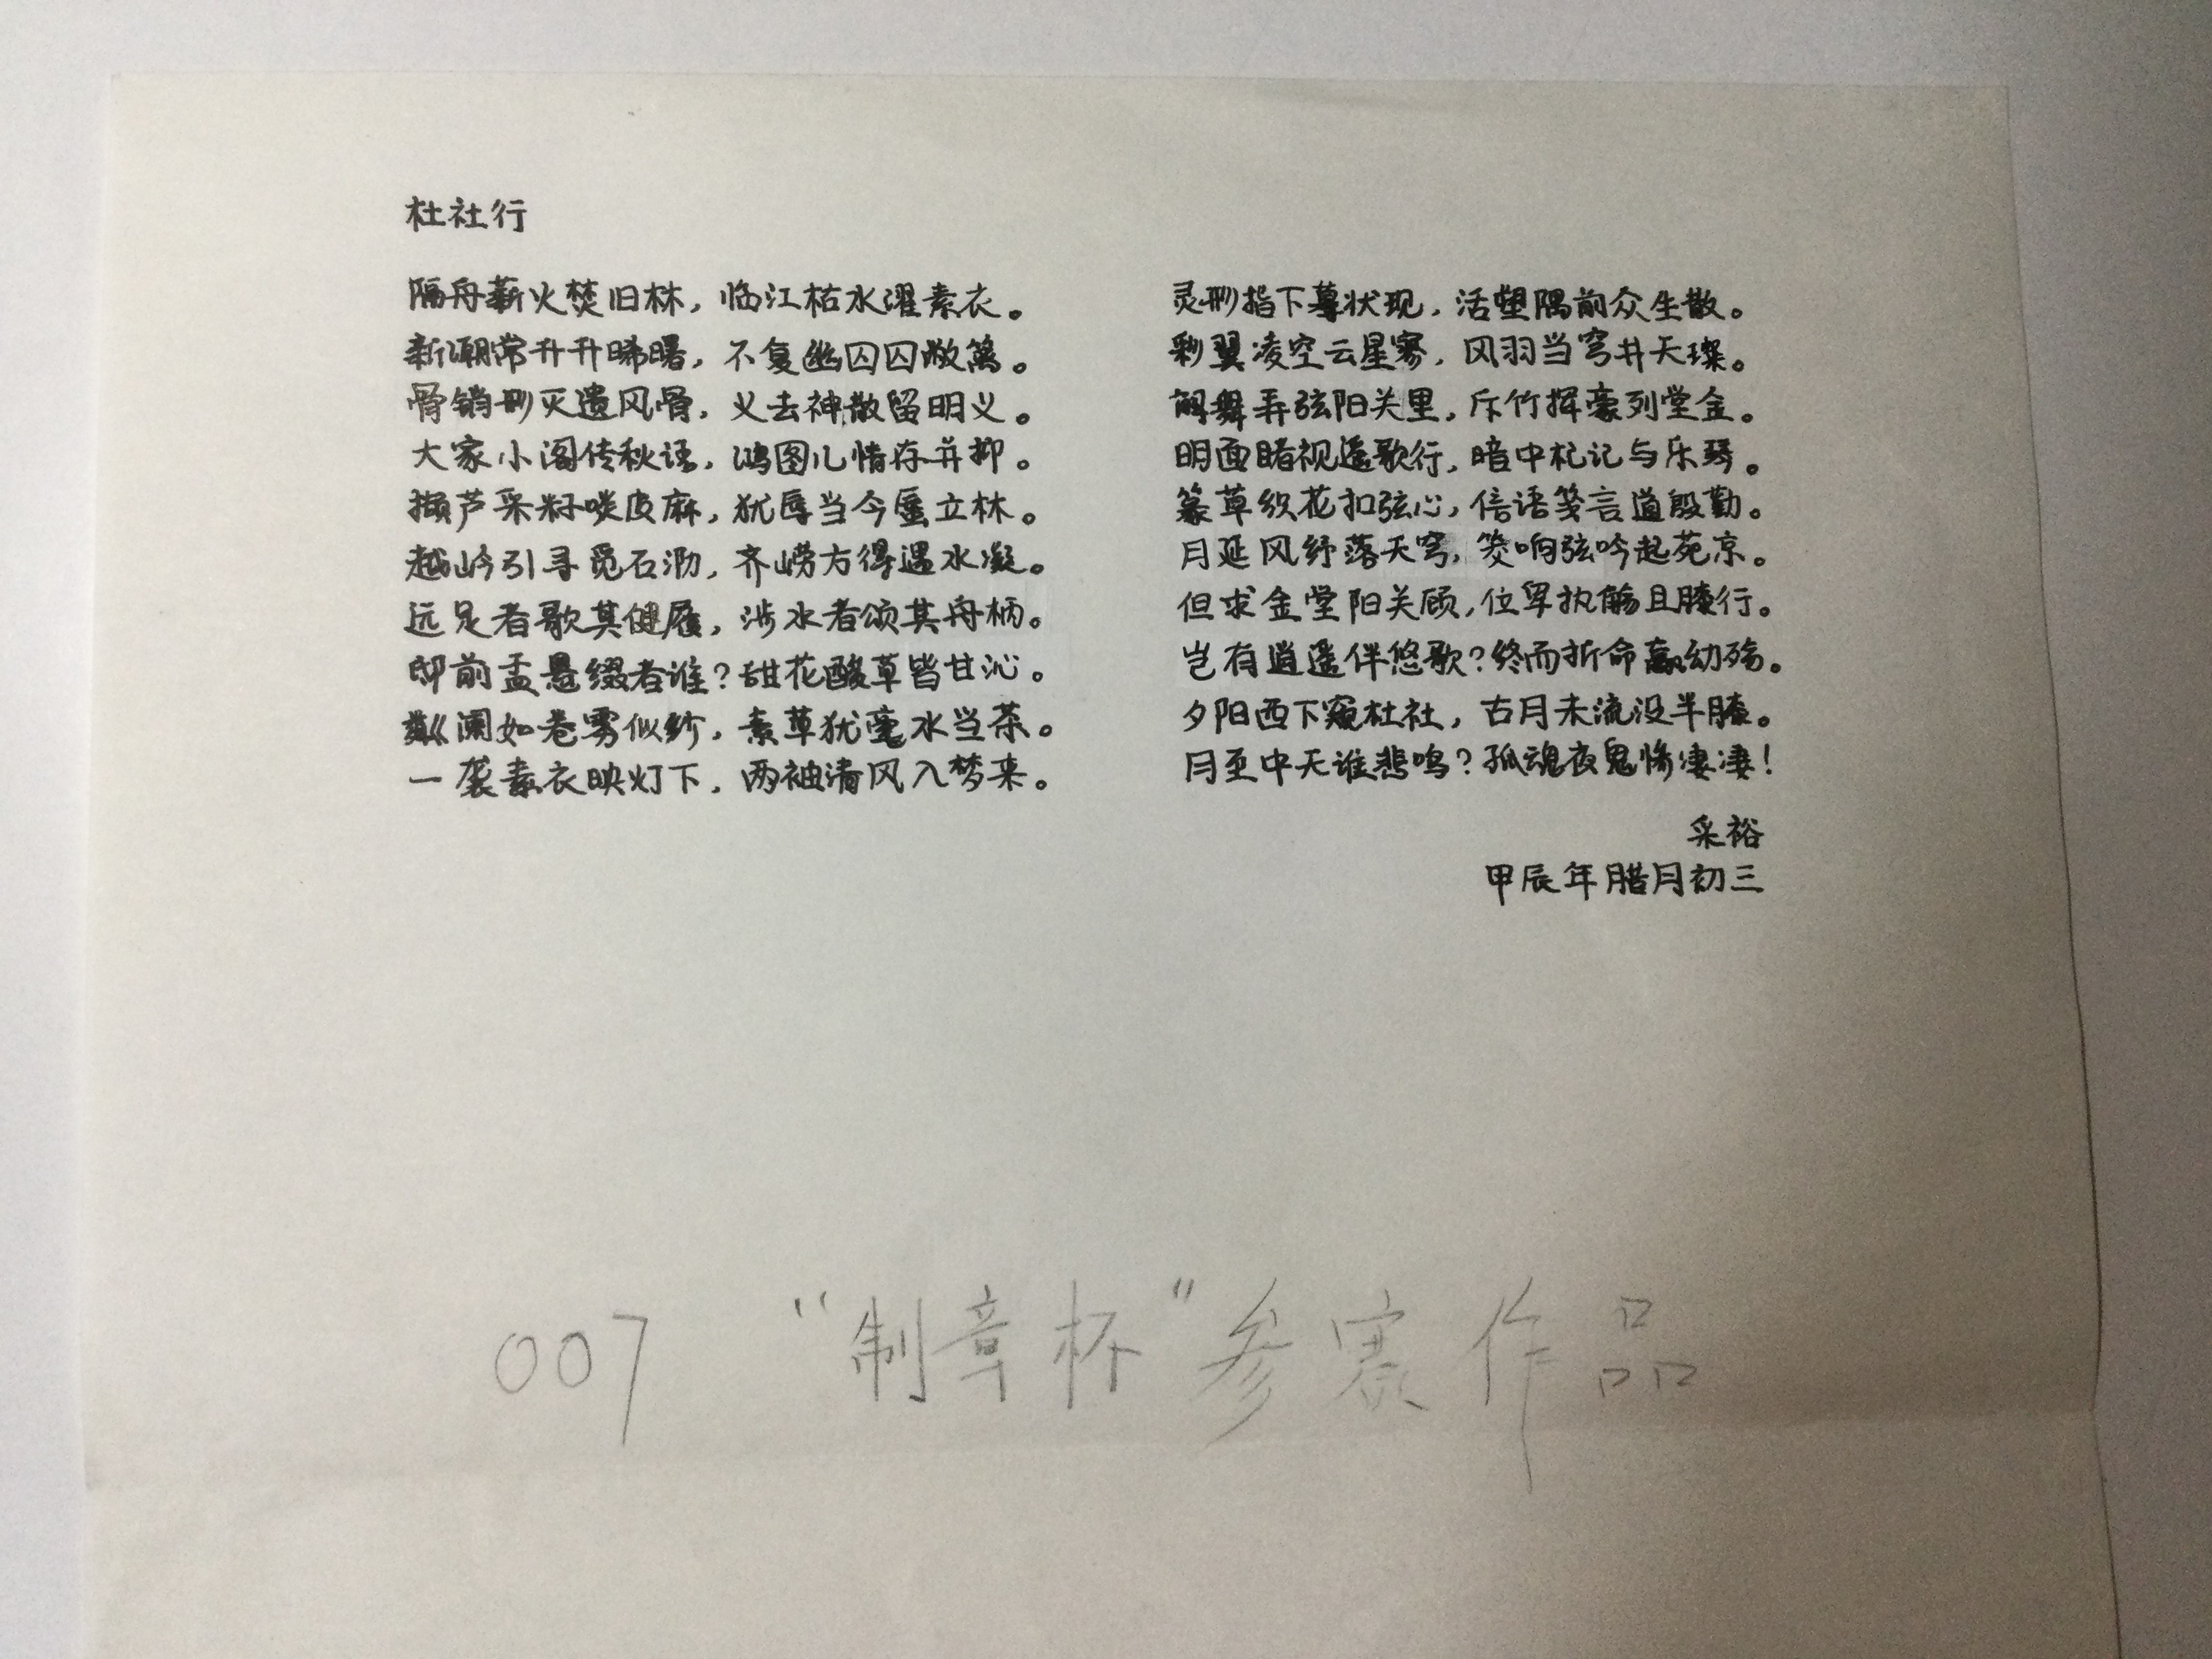 杜社行
隔舟薪火焚旧林，临江枯水濯素衣。
新潮常升升晞曙，不复幽囚囚敝篱。
骨销形灭遗风骨，义去神散留明义。
大家小阁传秋语，鸿图儿情存并抑。
撷芦采籽啖皮麻，犹厚当今蜃立林。
越岭引寻觅石泐，齐崂方得遇水凝。
远足者歌其健履，涉水者颂其舟柄。
邸前盂悬缀者谁？甜花酸草皆甘沁。
阑如卷雾似纱，素草犹毫水当茶。
一袭素衣映灯下，两袖清风入梦来。
灵形指下尊状现，活塑隅前众生散。
彩翼凌空云星寥，风羽当穹井天璨。
觥舞弄弦阳关里，斥竹挥豪列堂金。
明面睹视遥歌行，暗中札记与乐琴。
篆草织花扣弦心，倍语笺言道殷勤。
月延风纾落天穹，筊响弦吟起苑京。
但求金堂阳关顾，位卑执觞且膝行。
岂有逍遥伴悠歌？终而折命赢幼殇。
夕阳西下窥杜社，古月未流没半膝。
月至中天谁悲鸣？孤魂夜鬼惨凄凄！
采裕
甲辰年腊月初三
007 “制章杯”参赛作品